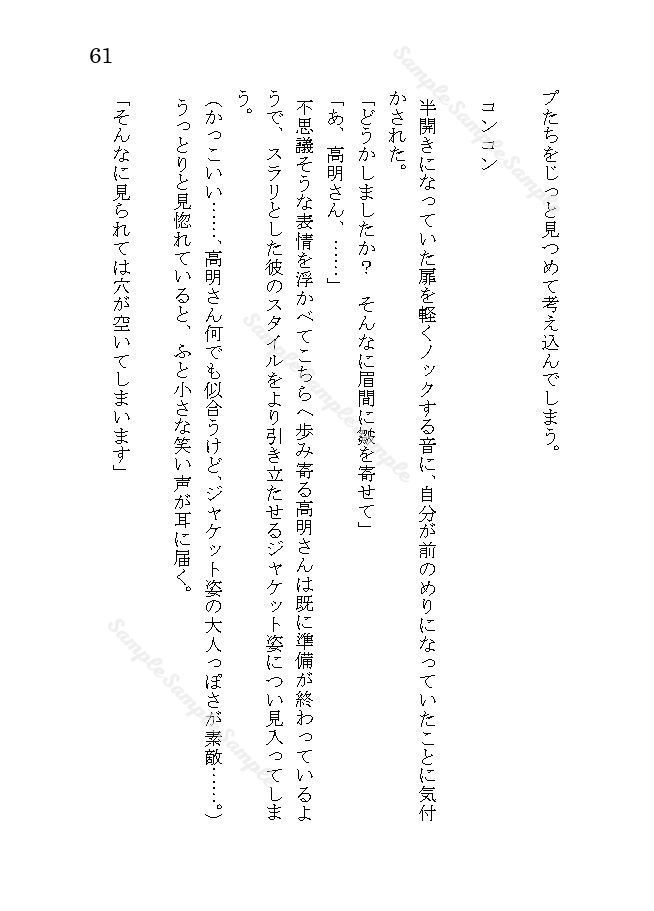 61
プたちをじっと見つめて考え込んでしまう。
コンコン
半開きになっていた扉を軽くノックする音に、自分が前のめりになっていたことに気付
かされた。
「どうかしましたか？　そんなに眉間に皺を寄せて」
「あ、高明さん、……」
不思議そうな表情を浮かべてこちらへ歩み寄る高明さんは既に準備が終わっているよ
うで、スラリとした彼のスタイルをより引き立たせるジャケット姿につい見入ってしま
う。
（かっこいい……、高明さん何でも似合うけど、ジャケット姿の大人っぽさが素敵……。）
うっとりと見惚れていると、ふと小さな笑い声が耳に届く。
「そんなに見られては穴が空いてしまいます」
SampleSampleSample
SampleSampleSample
SampleSampleSample